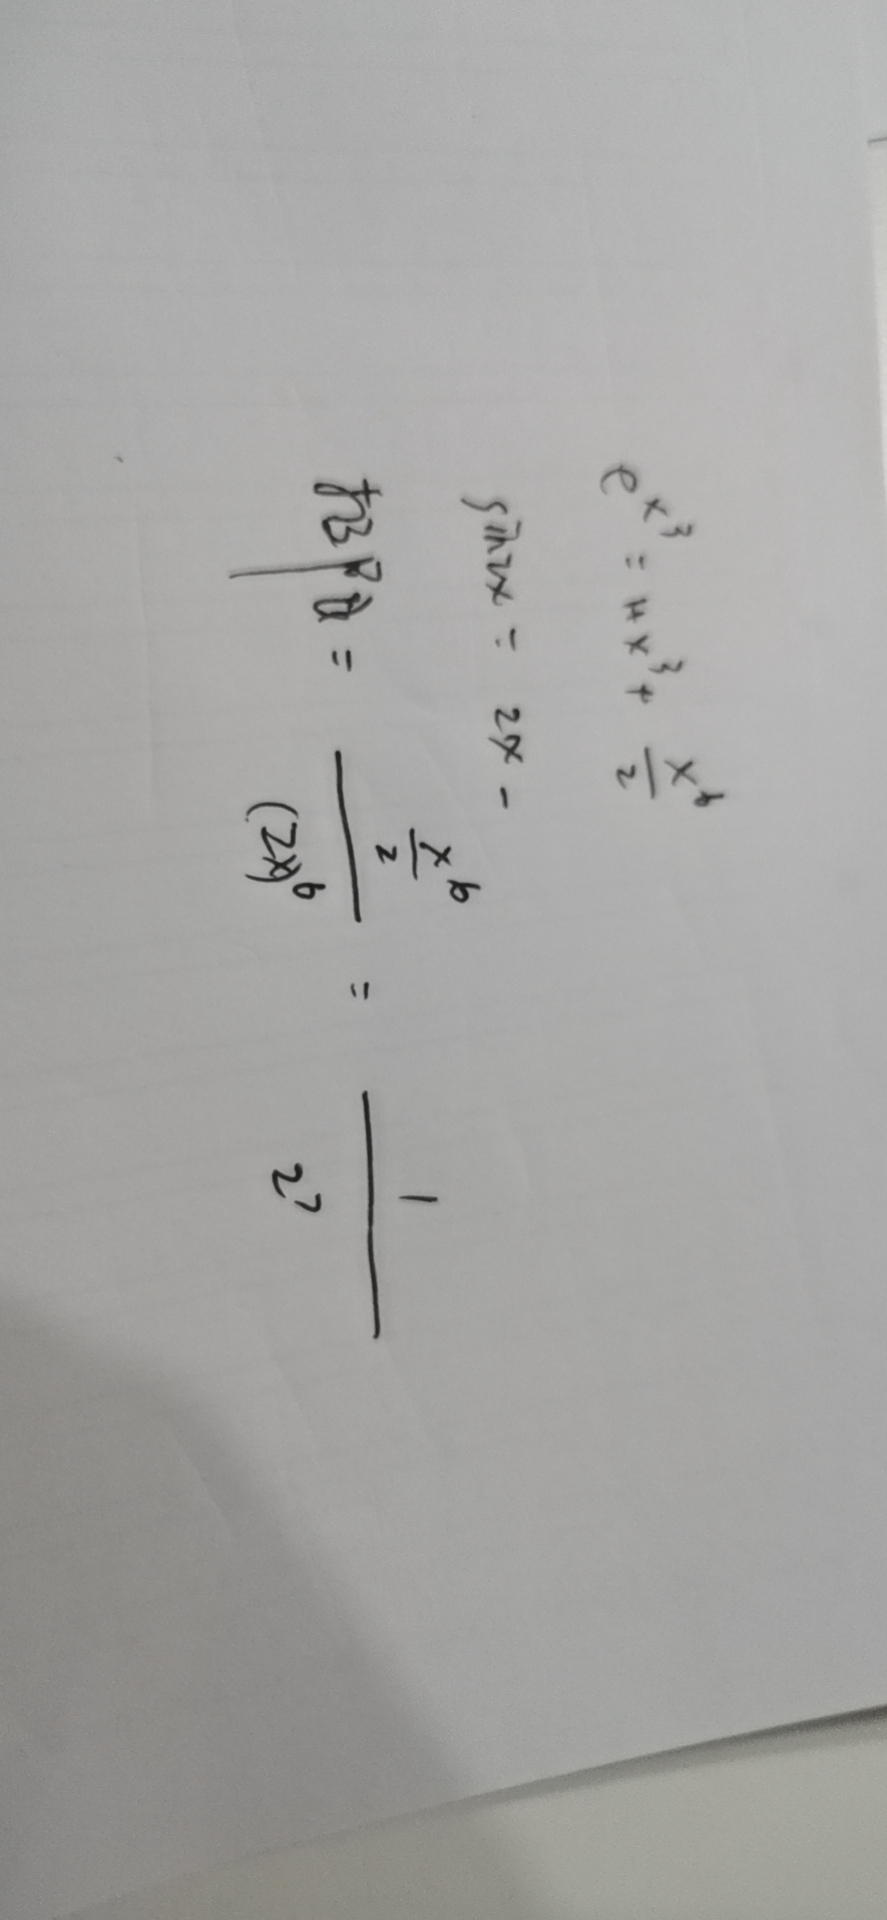 e^{x^3} = 1+x^3+ \frac{x^6}{2}
sin2x = 2x -
= \frac{\frac{x^6}{2}}{(2x)^6} = \frac{1}{2^7}